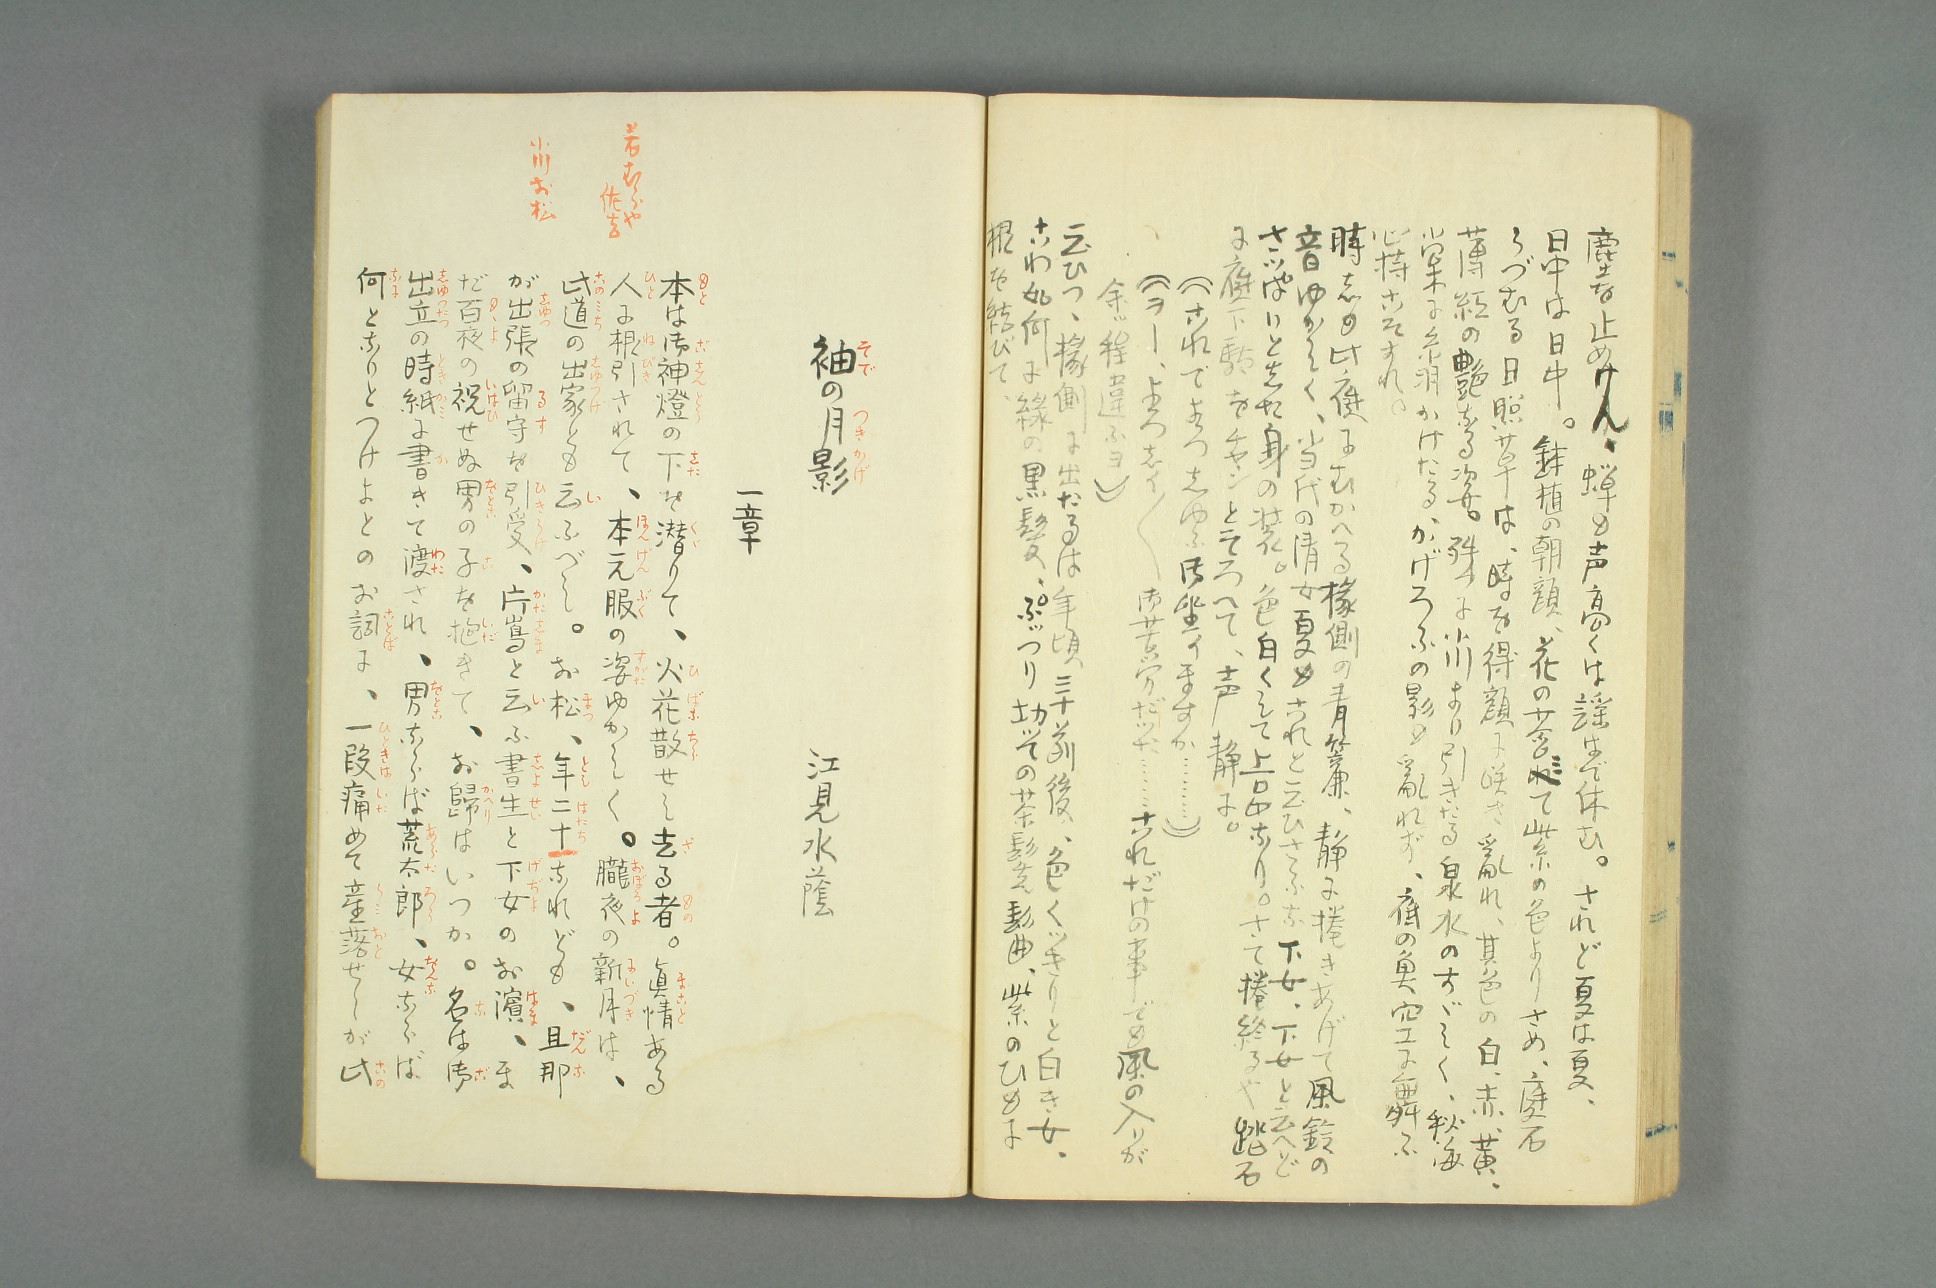 塵を止めけん、蝉も声高くは謡はで休む。されど夏は夏、
日中は日中。鉢植の朝顔、花の莟れて紫の色よりさめ、庭石
うづむる日照草は、時を得顔に咲き乱れ、其色の白、赤、黄、
薄紅の艶なる姿。殊に小川より引きたる泉水のすゞしく、秋海
棠に糸羽かけたるかげろふの影も乱れず、底の魚空に舞ふ
心持こそすれ。
時しも此庭にむかへる椽側の青簾、静に捲きあげて風鈴の
音ゆかしく、当代の清女夏もされと云ひさふな下女、下女と云へど
さつぱりとした身の装。色白くして上品なり。さて捲終るや踏石
に庭下駄をチヤンとそろへて、声静に。
(これでよろしゆふ御坐イますか………)
(ヲー、よろしイ〳〵御苦労だつた……これだけの事でも風の入りが
余ツ程違ふヨ)
云ひつゝ椽側に出たるは年頃三十前後、色くツきりと白き女、
こわ如何に緑の黒髪、ぷツつり切ツての茶筅髷、紫のひもに
根を結びて、
若むらや
佐吉
小川お松
袖の月影
そで つきかげ
江見水蔭
一章
本は御神燈の下を潜りて、火花散せし去る者。眞情ある
人に根引されて、本元服の姿ゆかしく。朧夜の新月は、
此道の出家とも云ふべし。お松、年二十なれども、旦那
が出張の留守を引受、片嶌と云ふ書生と下女のお濱、ま
だ百夜の祝せぬ男の子を抱きて、お歸はいつか。名は御
出立の時紙に書きて渡され、男ならば荒太郎、女ならば
何となりとつけよとのお詞に、一段痛めて産落せしが此